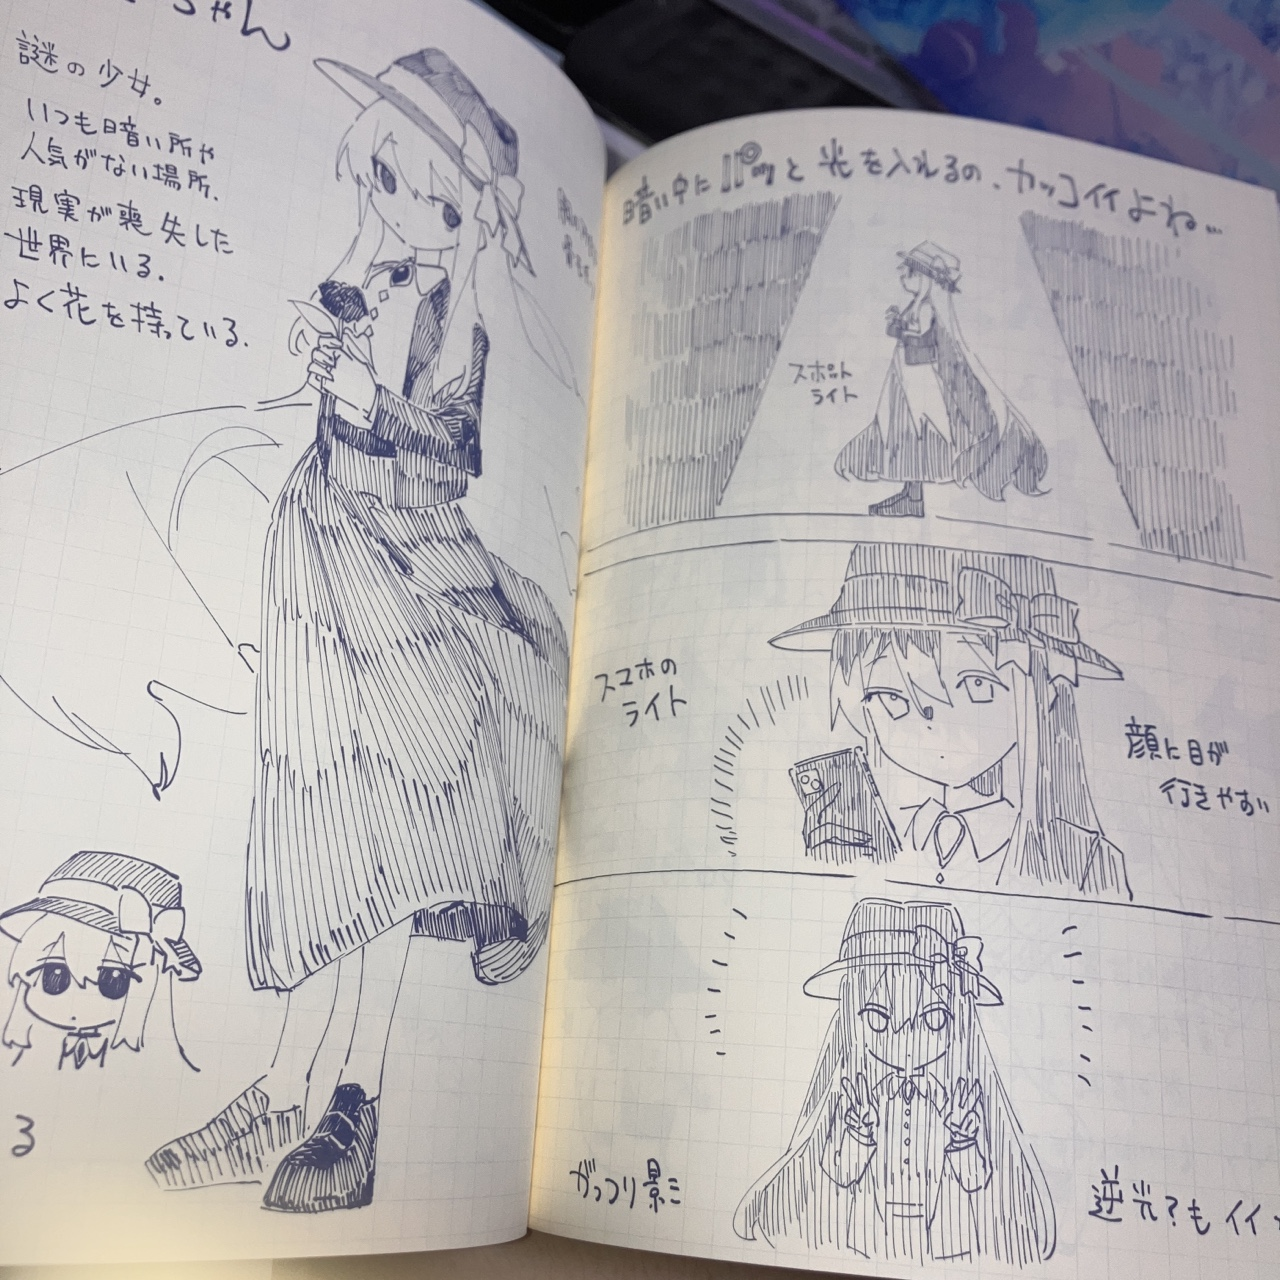 ちゃん
謎の少女。
いつも暗い所や
人気がない場所.
現実が喪失した
世界にいる.
よく花を持っている.
3
暗い中にパッと光を入れるの、カッコイイよね…
スポット
ライト
スマホの
ライト
顔に目が
行きやすい
がっつり影ミ
逆光?もイイ